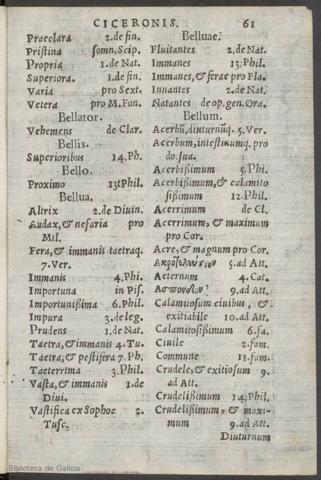 CICERONIS. 61
Praeclara 2.de fin.
Pristina somn.Scip.
Propria 1.de Nat.
Superiora. 1.de fin.
Varia pro Sext.
Vetera pro M.Fon.
Bellator.
Vehemens de Clar.
Bellis.
Superioribus 14.Ph.
Bello.
Proximo 13.Phil.
Bellua.
Altrix 2.de Diuin.
Audax,& nefaria pro
Mil.
Fera,& immanis taetraq.
7.Ver.
Immanis 4.Phi.
Importuna in Pis.
Importunißima 6.Phil.
Impura 3.de leg.
Prudens 1.de Nat.
Taetra,& immanis 4.Tu.
Taetra,& pestifera 7.Ph.
Taeterrima 3.Phil.
Vasta,& immanis 1.de
Diui.
Vastifica ex Sophoc 2.
Tusc.
Belluae.
Fluitantes 2.de Nat.
Immanes 13.Phil.
Immanes,& ferae pro Fla.
Innantes 2.de Nat.
Natantes de op.gen.Ora.
Bellum.
Acerbũ,diuturnũq. 5.Ver.
Acerbum,intestinumq. pro
do.sua.
Acerbißimum 5.Phi.
Acerbißimum,& calamito
sißimum 12.Phil.
Acerrimum de Cl.
Acerrimum,& maximum
pro Cor.
Acre,& magnum pro Cor.
5.ad Att.
Aeternum 4.Cat.
9.ad Att.
Calamitosum ciuibus, &
exitiabile 10.ad Att.
Calamitosißimum 6.fa.
Ciuile 2.fam.
Commune 11.fam.
Crudele,& exitiosum 9.
ad Att.
Crudelißimum 14.Phil.
Crudelißimum,& maxi-
mum 9.ad Att.
Diuturnum
Biblioteca de Galicia